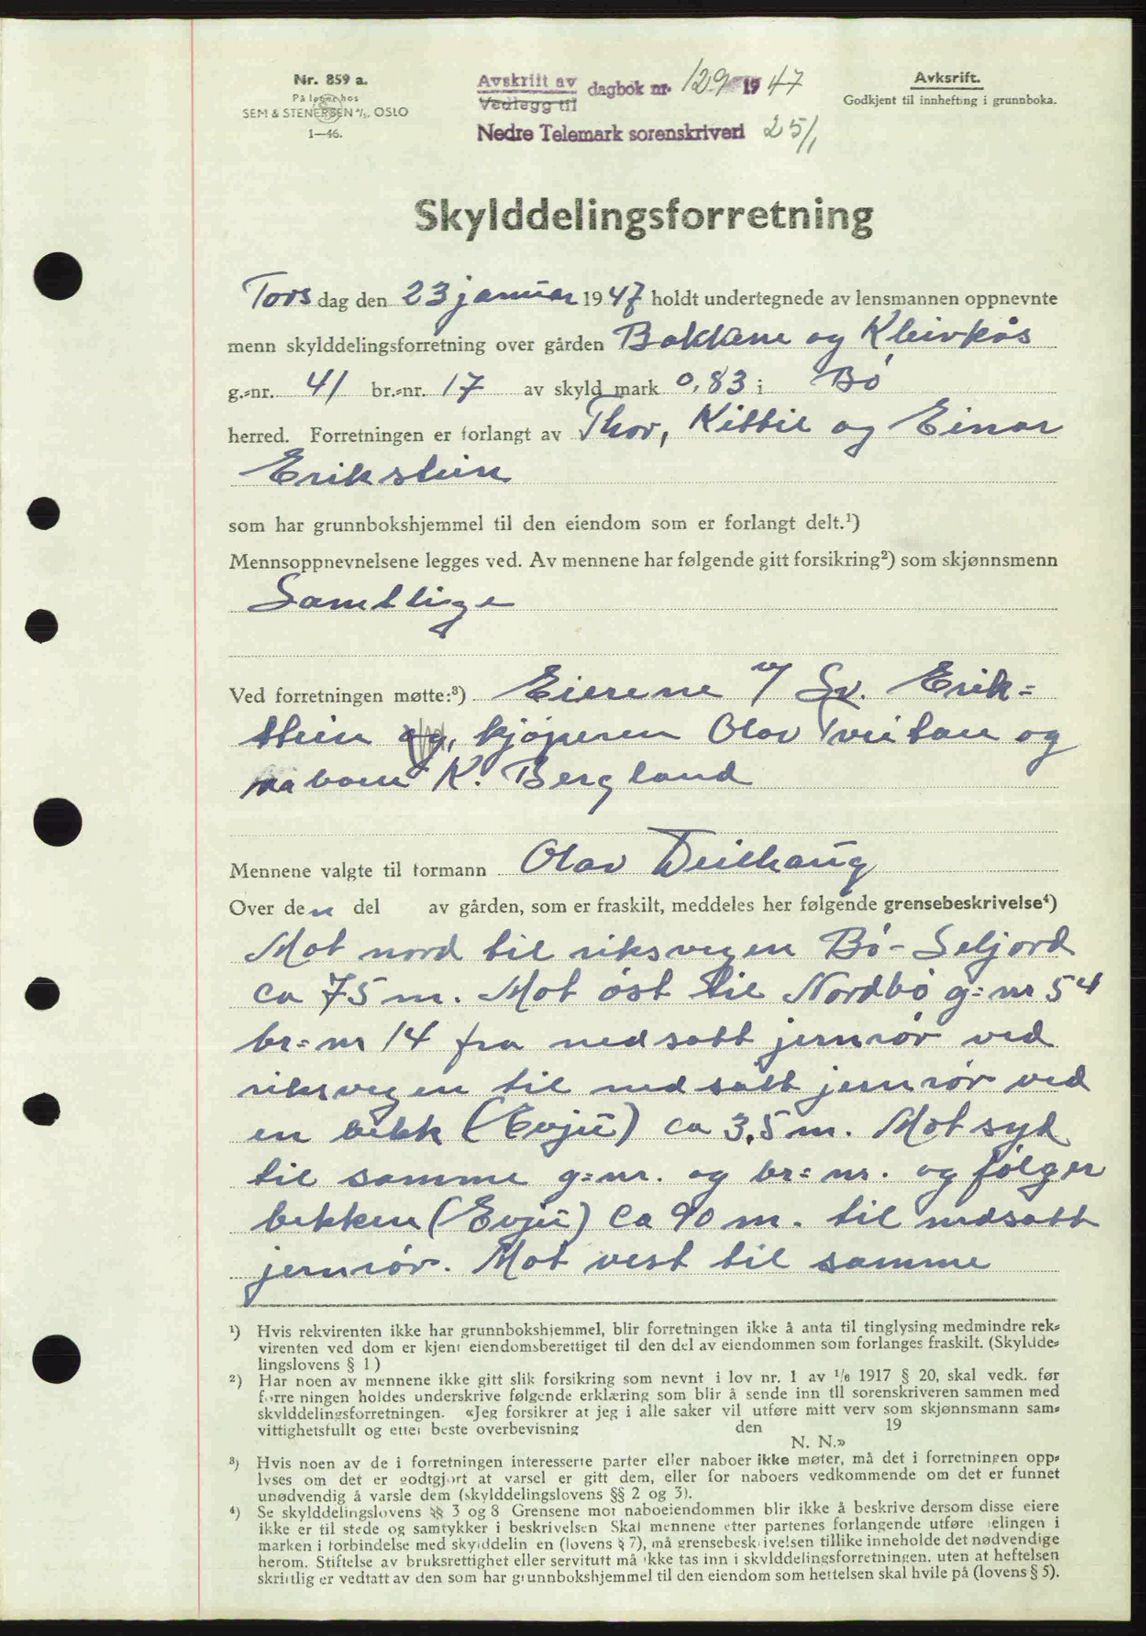 Nr. 859 a.
På lager hos
SEM & STENERSEN A/S, OSLO
1—46.
Avskrift av
Vedlegg til
dagbok nr. 129 1947
Nedre Telemark sorenskriveri 25/1
Avksrift.
Godkjent til innhefting i grunnboka.
Skylddelingsforretning
Tors dag den 23 januar 1947 holdt undertegnede av lensmannen oppnevnte
menn skylddelingsforretning over gården Bakkane og Kleivkås
g.=nr. 41 br.=nr. 17 av skyld mark 0,83 i Bø
herred. Forretningen er forlangt av Thor, Kittil og Einar
Erikstein
som har grunnbokshjemmel til den eiendom som er forlangt delt.¹)
Mennsoppnevnelsene legges ved. Av mennene har følgende gitt forsikring²) som skjønnsmenn
Samtlige
Ved forretningen møtte:³) Eierene v/ Sv. Erik=
stein, kjøperen Olav Tveitan og
naboen K. Bergland
Mennene valgte til formann Olav Teilhaug
Over den del av gården, som er fraskilt, meddeles her følgende grensebeskrivelse⁴)
Mot nord til riksvegen Bø-Seljord
ca 75 m. Mot øst til Nordbø g=nr 54
br=nr 14 fra nedsatt jernrør ved
riksvegen til nedsatt jernrør ved
en bekk (Evju) ca 3,5 m. Mot syd
til samme g=nr. og br=nr. og følger
bekken (Evju) ca 90 m. til nedsatt
jernrør. Mot vest til samme
¹) Hvis rekvirenten ikke har grunnbokshjemmel, blir forretningen ikke å anta til tinglysing medmindre rek=
virenten ved dom er kjent eiendomsberettiget til den del av eiendommen som forlanges fraskilt. (Skyldde=
lingslovens § 1)
²) Har noen av mennene ikke gitt slik forsikring som nevnt i lov nr. 1 av 1/6 1917 § 20, skal vedk. før
forretningen holdes underskrive følgende erklæring som blir å sende inn til sorenskriveren sammen med
skylddelingsforretningen. «Jeg forsikrer at jeg i alle saker vil utføre mitt verv som skjønnsmann sam=
vittighetsfullt og etter beste overbevisning den 19
N. N.»
³) Hvis noen av de i forretningen interesserte parter eller naboer ikke møter, må det i forretningen opp=
lyses om det er godtgjort at varsel er gitt dem, eller for naboers vedkommende om det er funnet
unødvendig å varsle dem (skylddelingslovens §§ 2 og 3).
⁴) Se skylddelingslovens §§ 3 og 8 Grensene mot naboeiendommen blir ikke å beskrive dersom disse eiere
ikke er til stede og samtykker i beskrivelsen Skal mennene etter partenes forlangende utføre delingen i
marken i forbindelse med skylddelin en (lovens § 7), må grensebeskrivelsen tillike inneholde det nødvendige
herom. Stiftelse av bruksrettighet eller servitutt må ikke tas inn i skylddelingsforretningen, uten at heftelsen
skriftlig er vedtatt av den som har grunnbokshjemmel til den eiendom som heftelsen skal hvile på (lovens § 5).